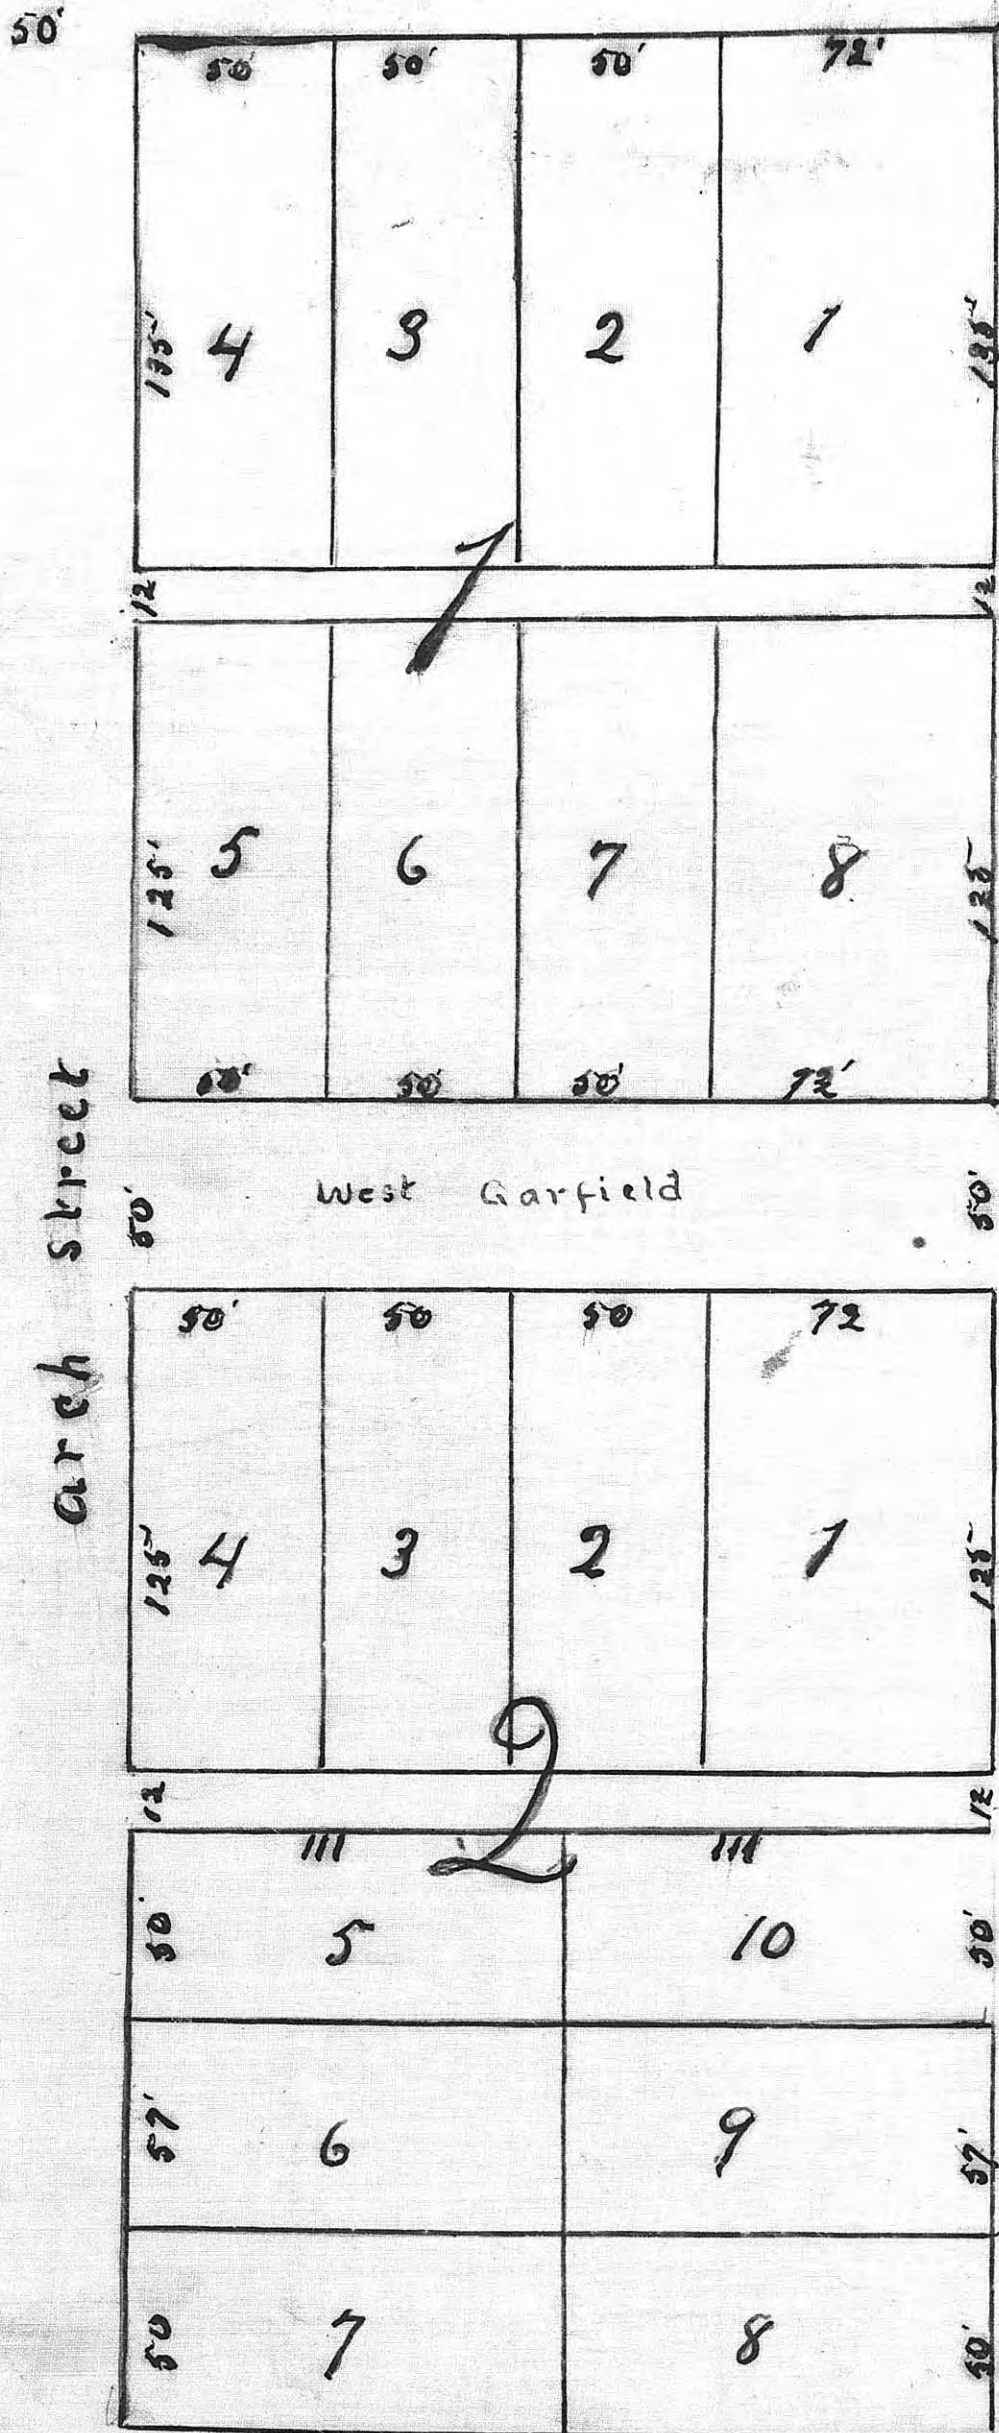 50'
50' 50' 50' 72'
135' 4 3 2 1 135'
1
12 12
125' 5 6 7 8 125
50' 50' 50' 72'
Arch Street
50' West Garfield 50'
50' 50 50 72
125' 4 3 2 1 125
2
12 12
111 111
50' 5 10 50'
57' 6 9 57'
50 7 8 50'